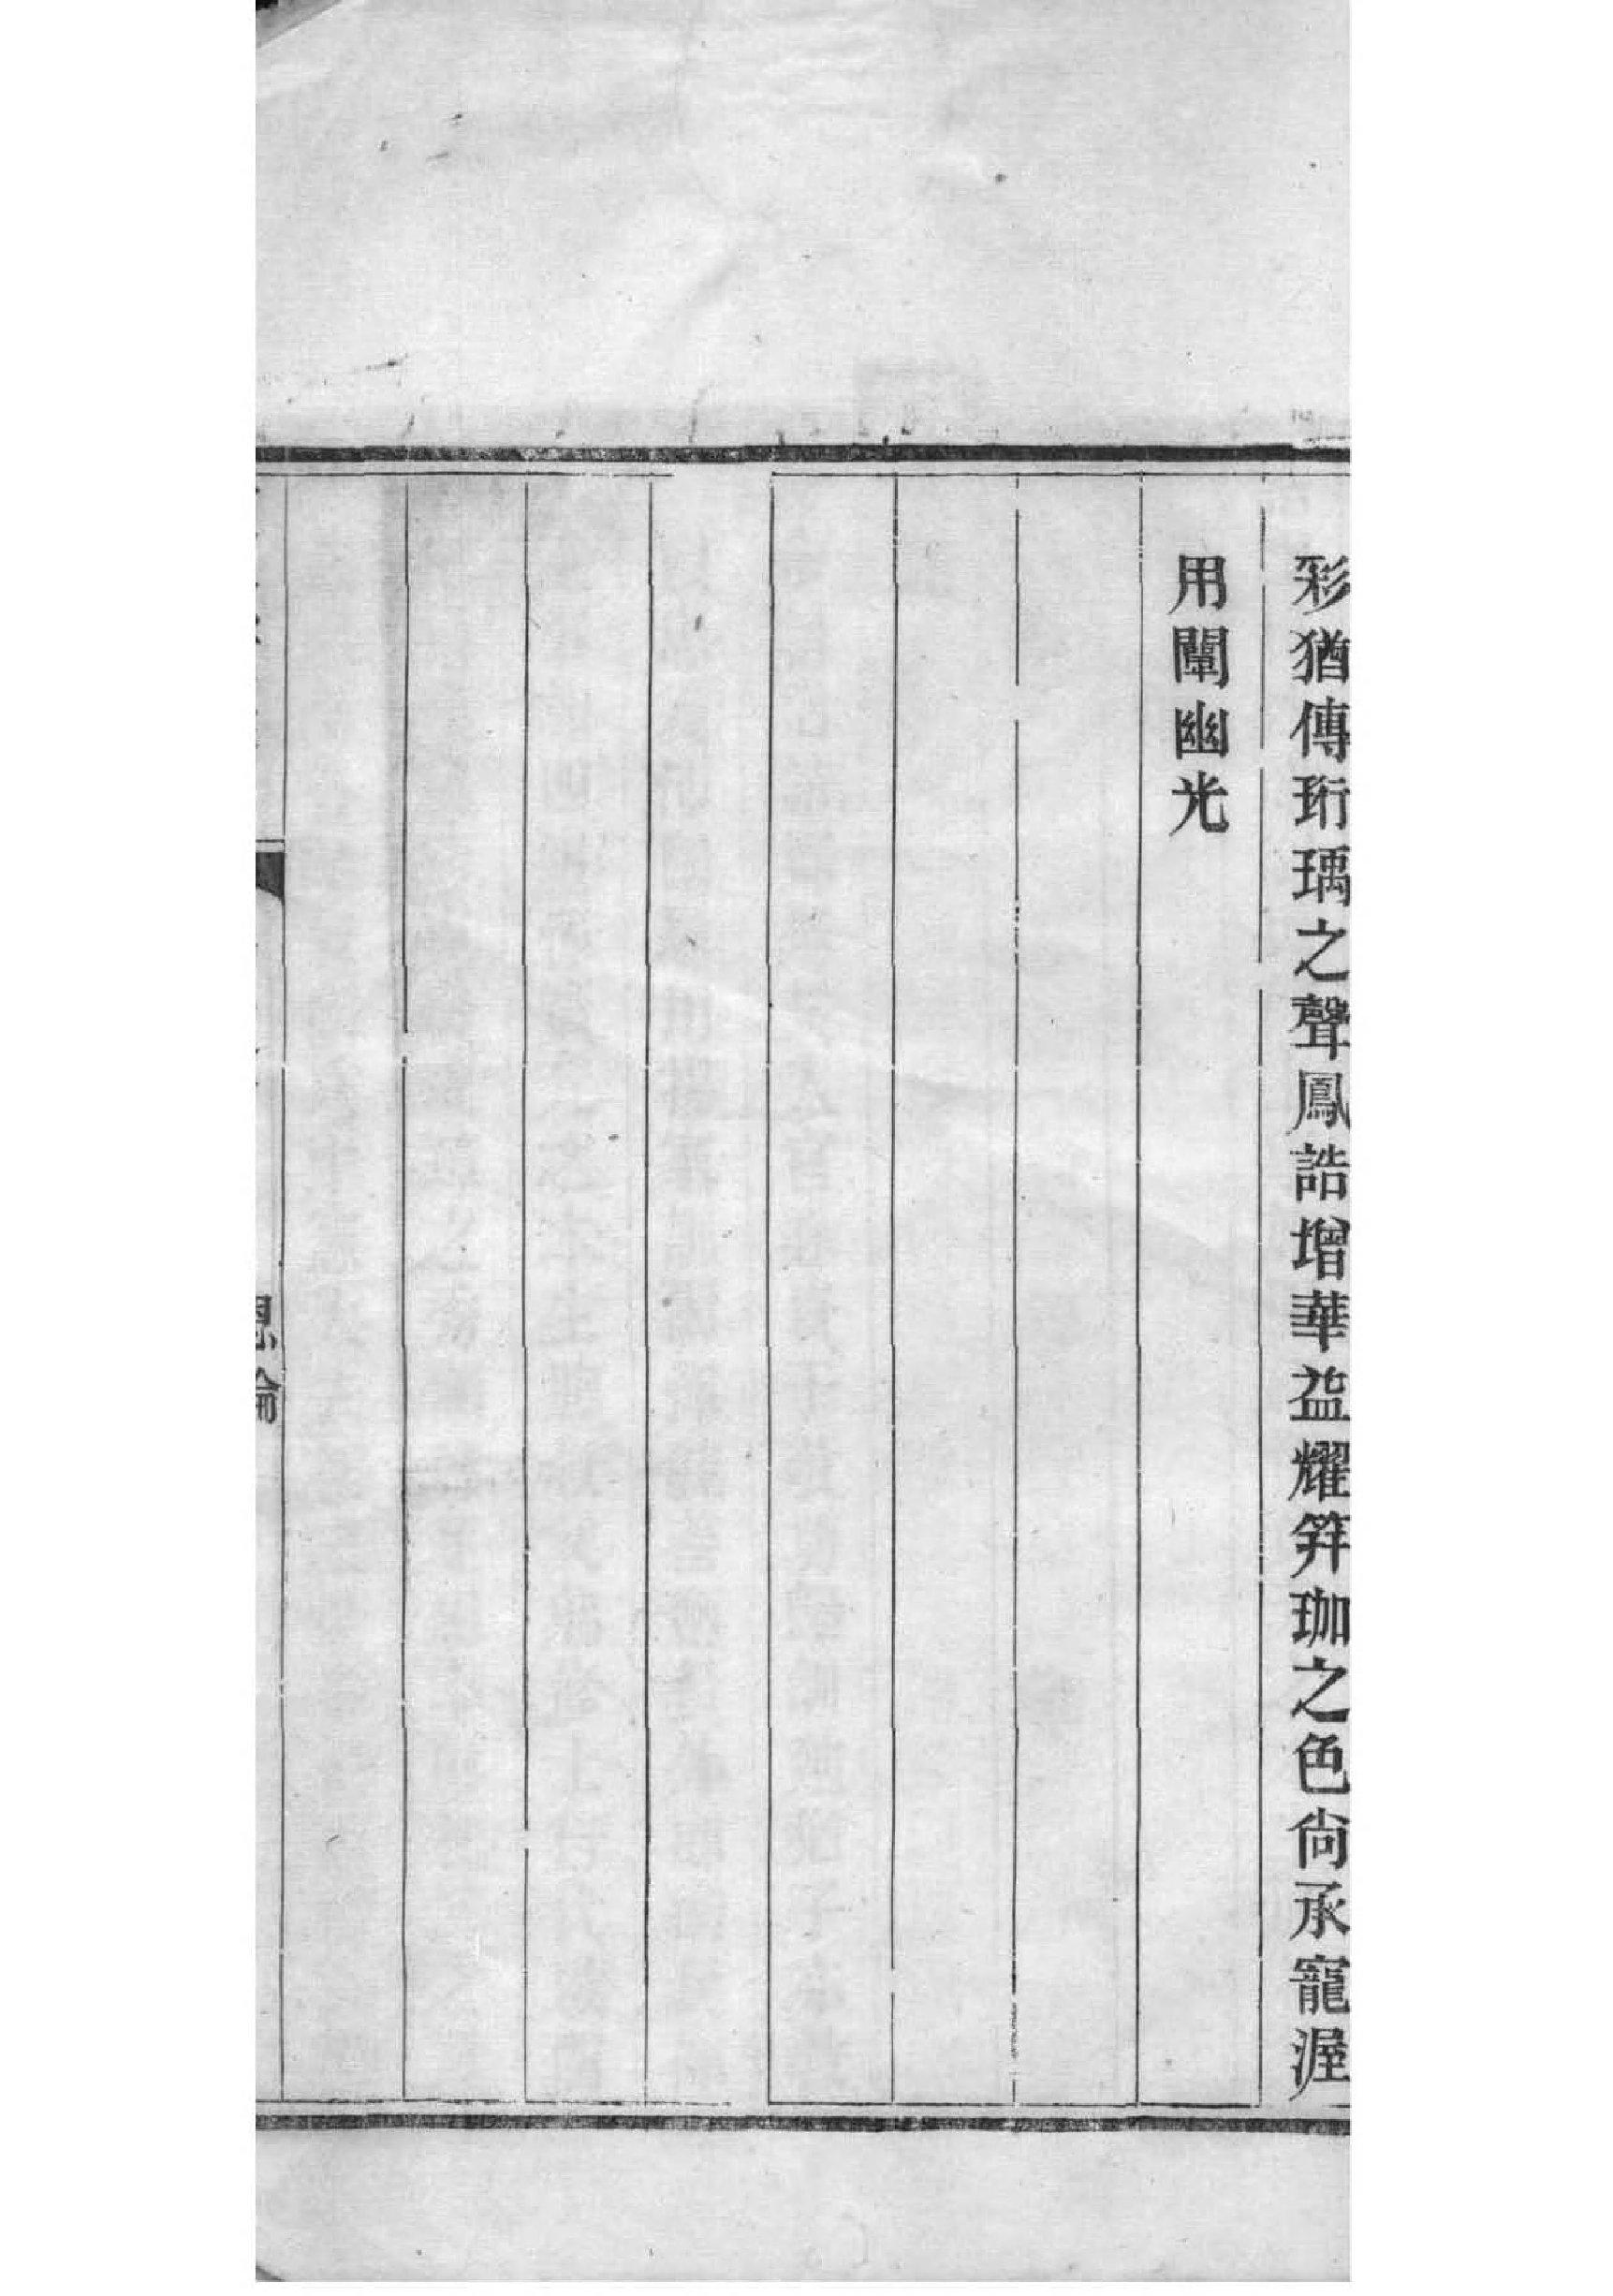 彩猶傳珩瑀之聲鳳誥增華益耀笄珈之色尙承寵渥
用闡幽光
恩綸